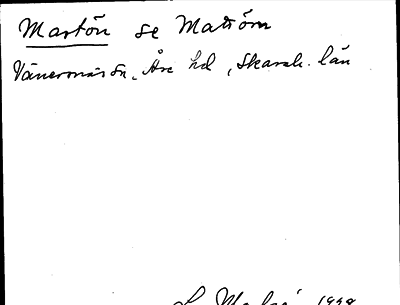 Martön se Matön
Vänersnäs sn, Åse hd, Skarab. län
1998